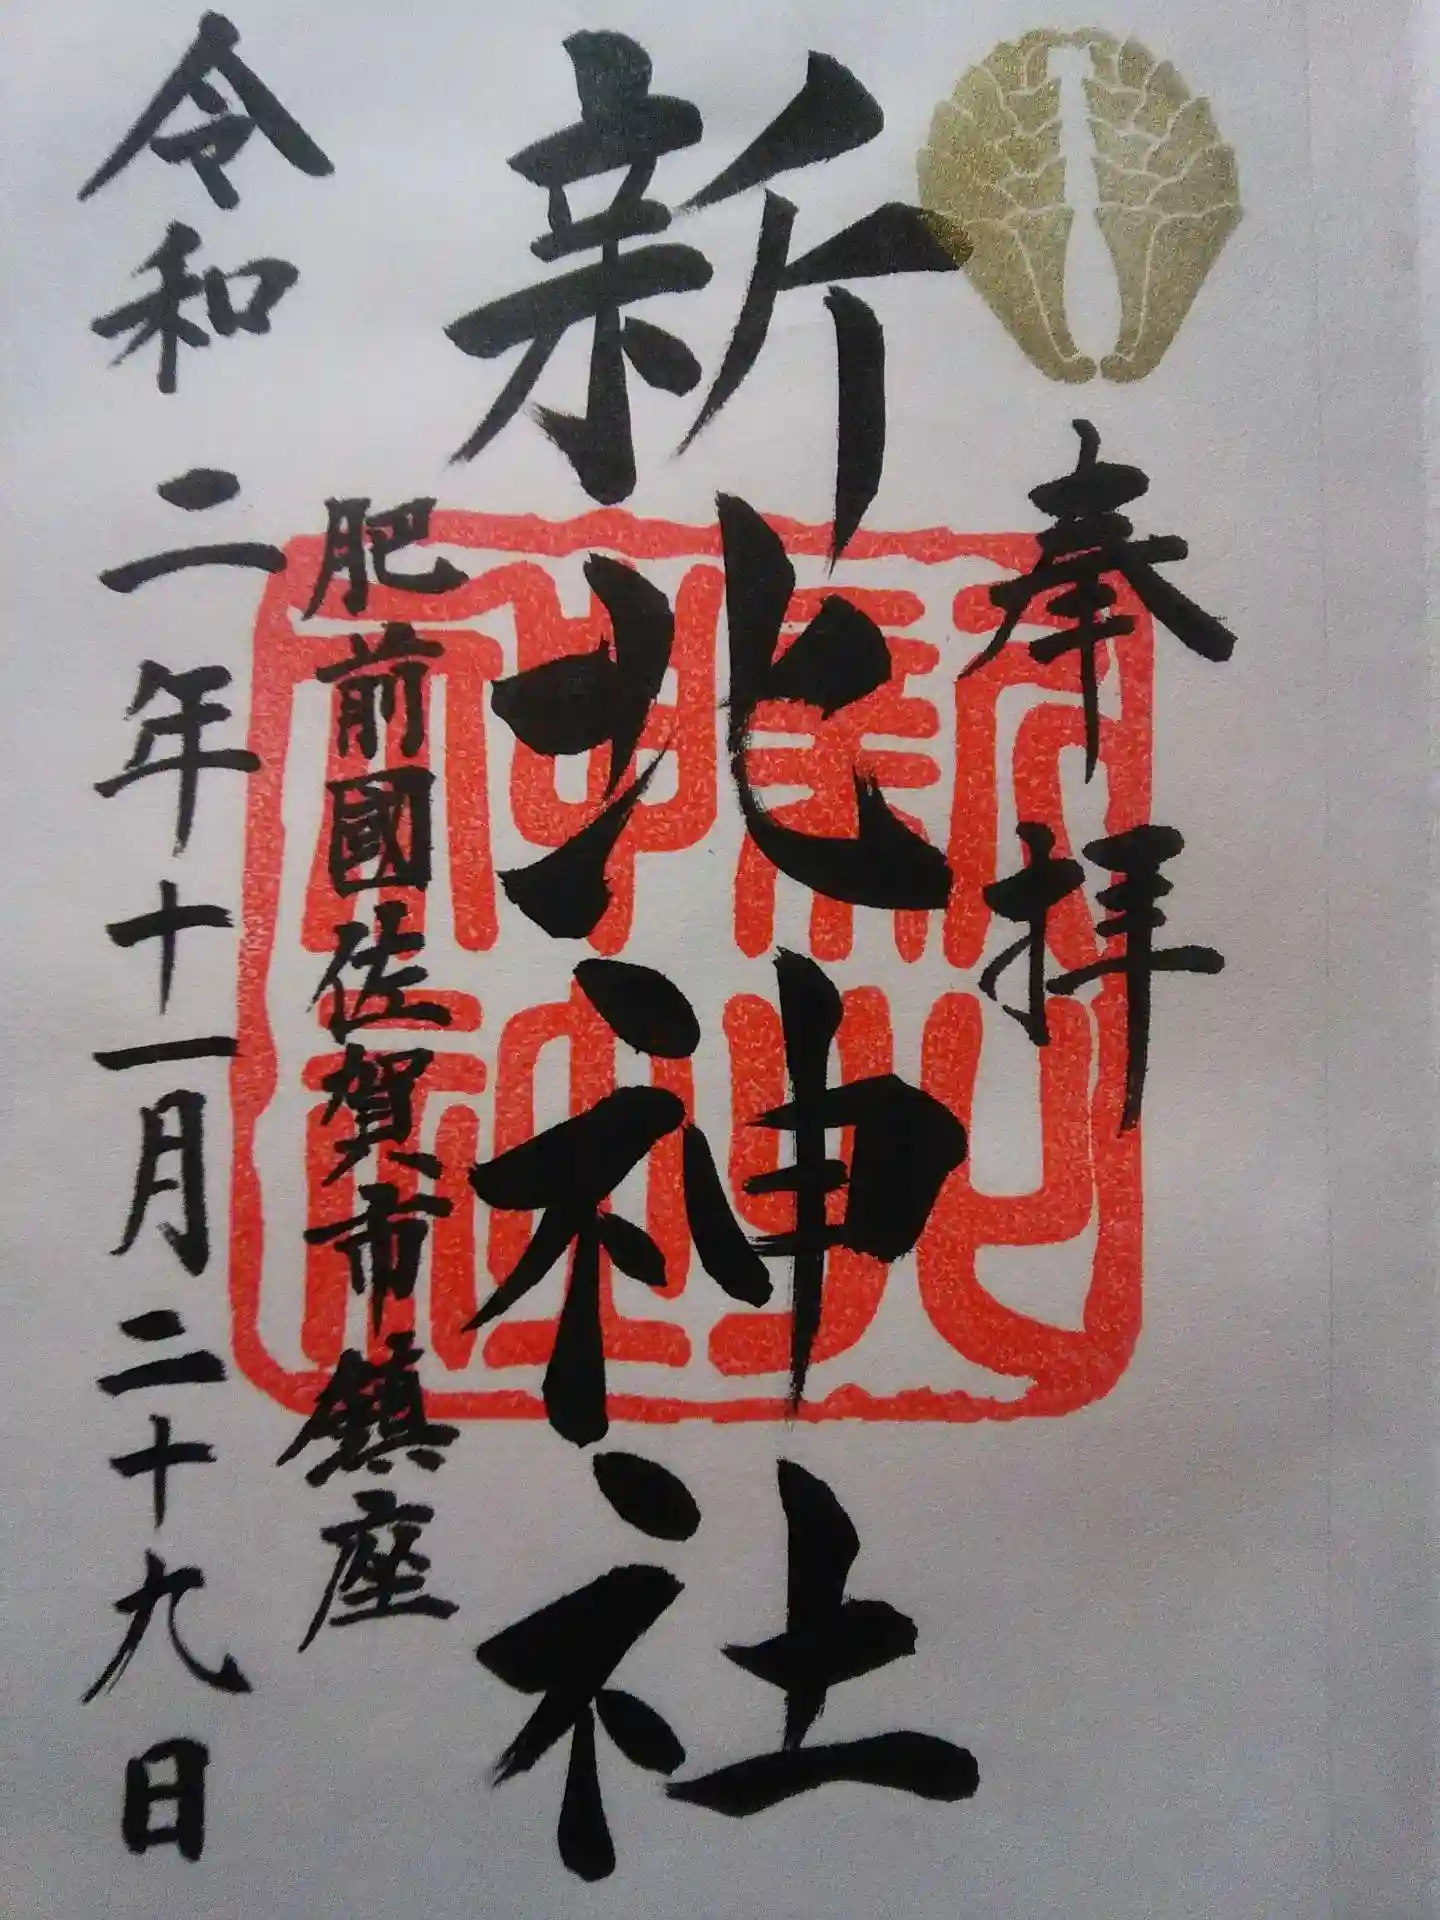 奉拝
新北神社
肥前國佐賀市鎮座
令和二年十一月二十九日